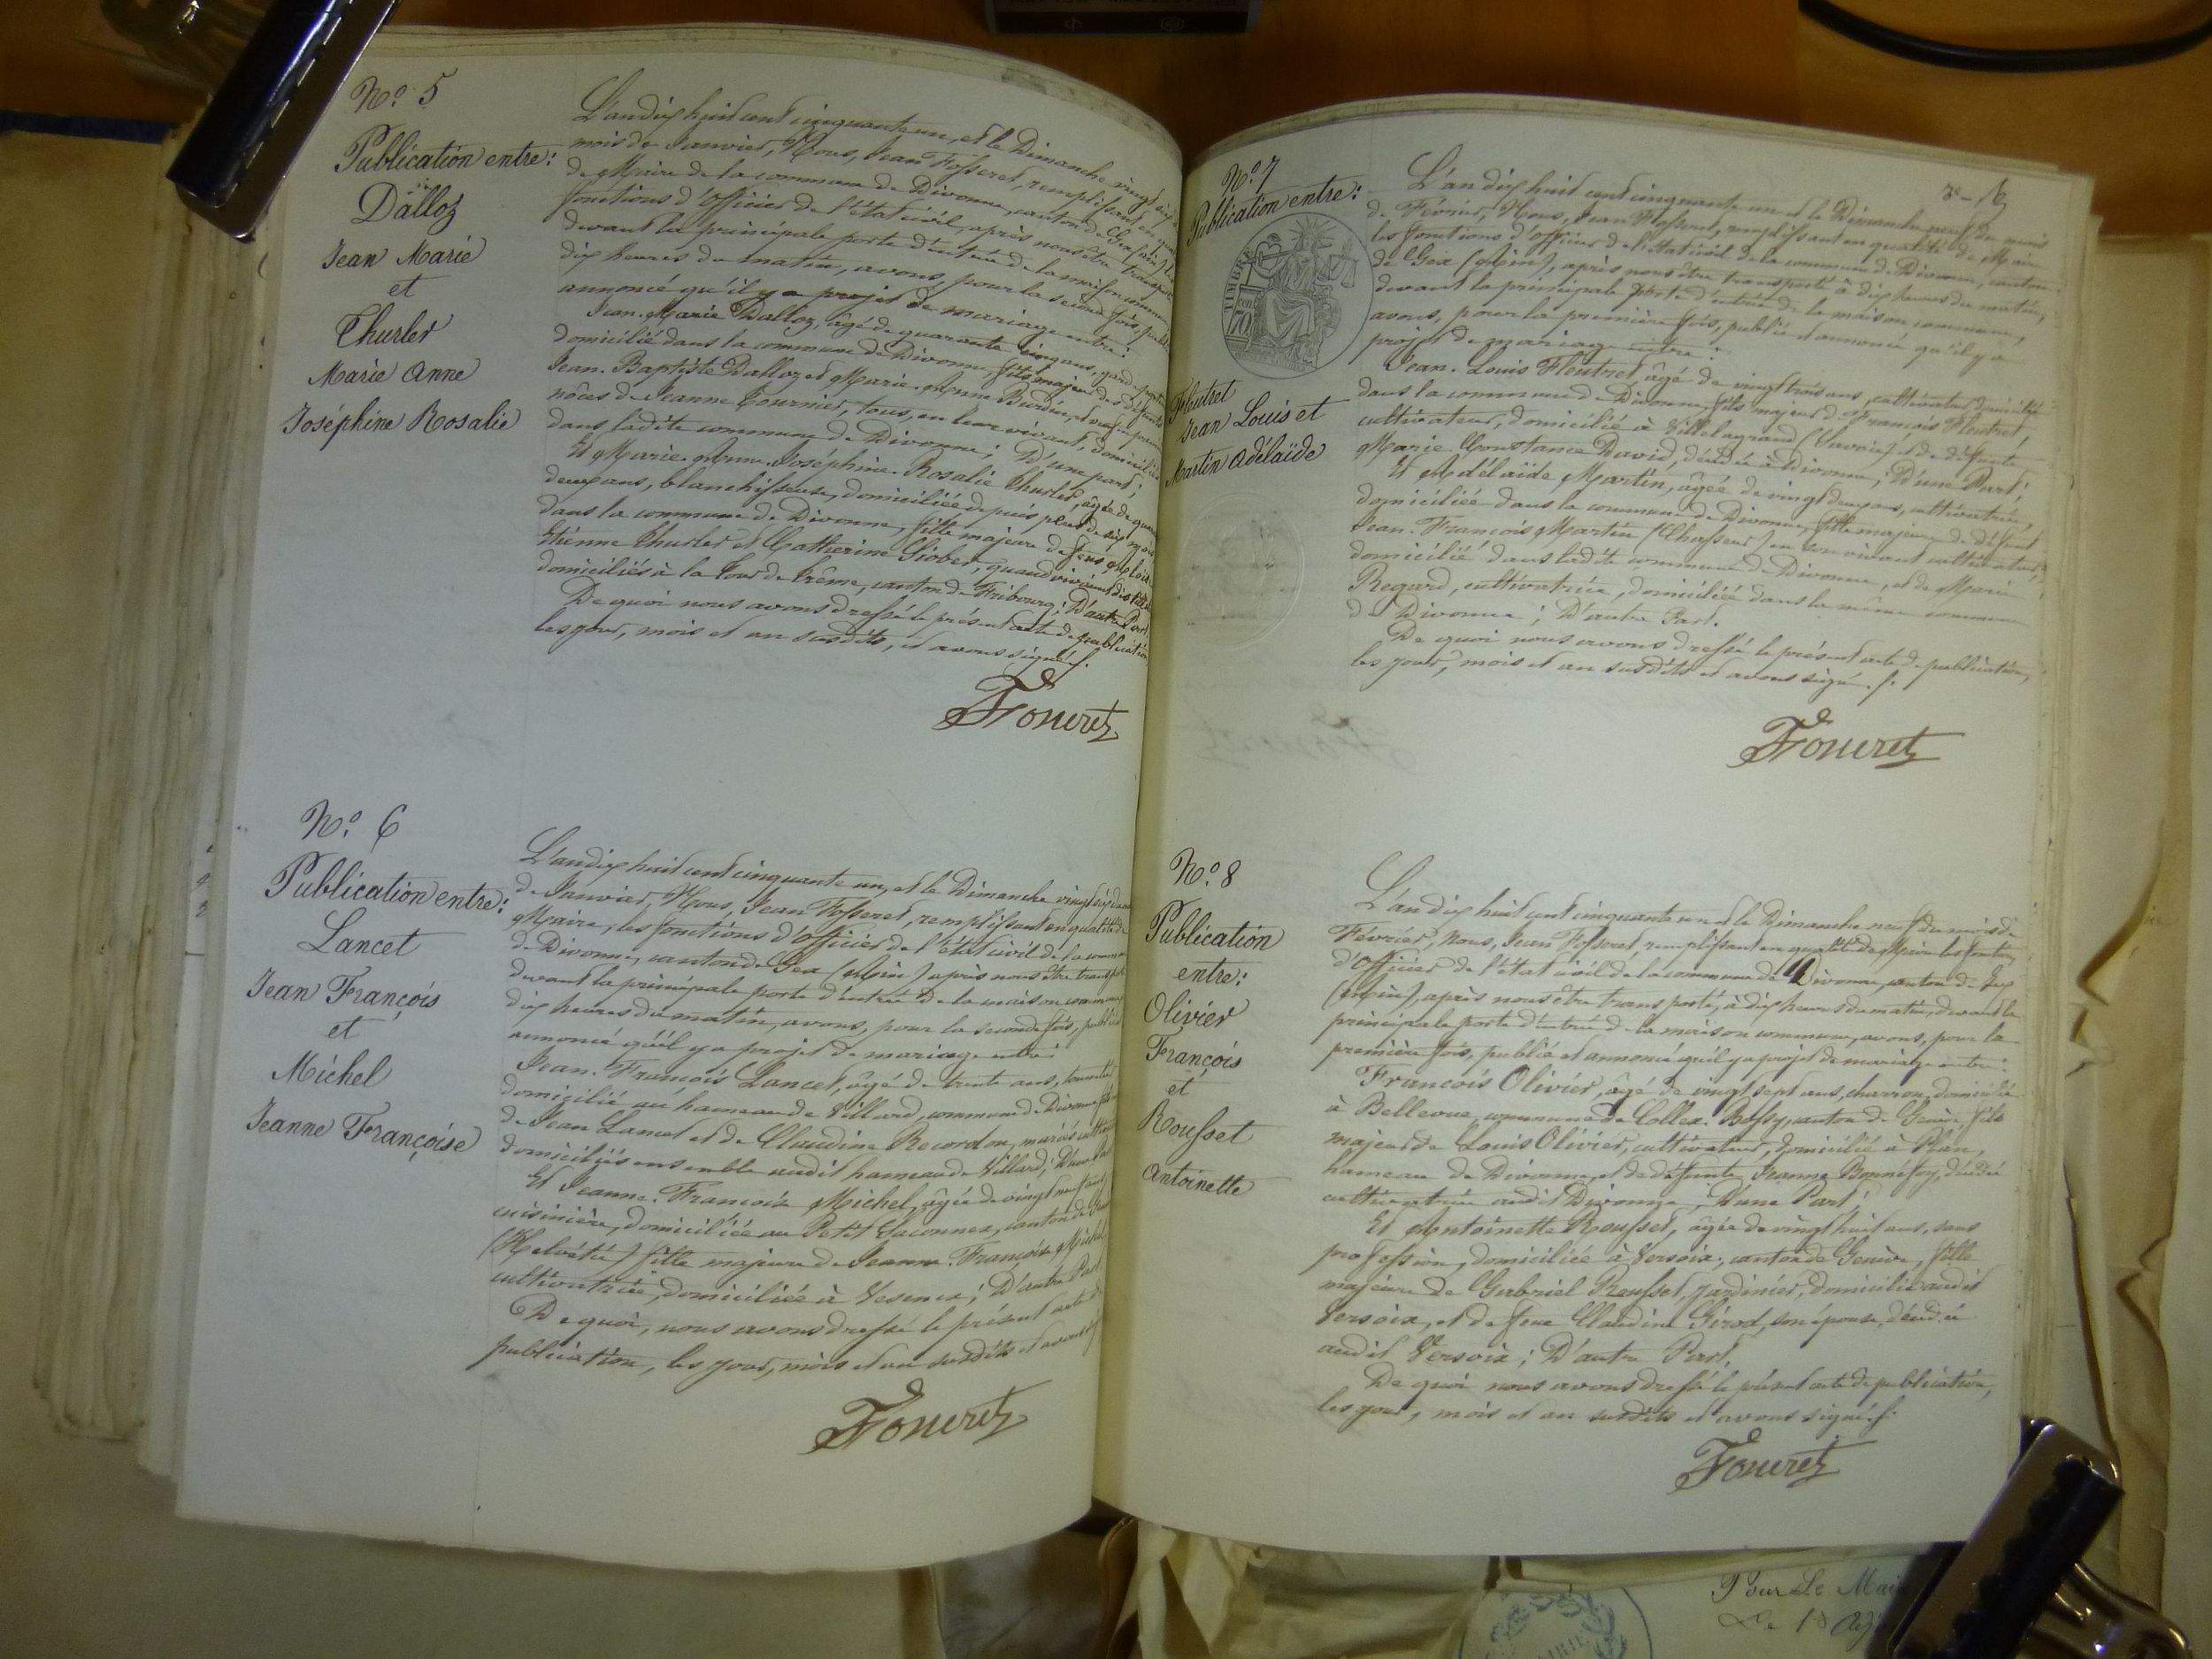 No. 5
Publication entre:
Dalloz
Jean Marie
et
Thurler
Marie Anne
Joséphine Rosalie
L'an dix huit cent cinquante un, et le Dimanche vingt six
mois de Janvier, Nous, Jean Fosseret, remplissant en
de Maire de la commune de Divonne, canton de Gex (Ain)
fonctions d'officier de l'état civil, après nous être transporté
devant la principale porte d'entrée de la maison commune
dix heures du matin, avons, pour la seconde fois, publié
annoncé qu'il y a projet de mariage entre:
Jean-Marie Dalloz, âgé de quarante cinq ans,
domicilié dans la commune de Divonne, fils majeur des défunts
Jean-Baptiste Dalloz et Marie-Anne Burdin, et veuf en
nôces de Jeanne Tournier, tous, en leur vivant, domiciliés
dans ladite commune de Divonne; D'une part;
Et Marie-Anne-Joséphine-Rosalie Thurler, âgée de
deux ans, blanchisseuse, domiciliée depuis plus de six mois
dans la commune de Divonne, fille majeure de feus
Etienne Thurler et Catherine, quand vivaient
domiciliés à la Tour de Trême, canton de Fribourg; D'autre Part.
De quoi nous avons dressé le présent acte de publication
les jour, mois et an susdits, et avons signé.
Fosseret
No. 6
Publication entre:
Lancet
Jean François
et
Michel
Jeanne Françoise
L'an dix huit cent cinquante un, et le Dimanche vingt six du mois
de Janvier, Nous, Jean Fosseret, remplissant en qualité de
Maire, les fonctions d'officier de l'état civil de la commune
de Divonne, canton de Gex (Ain) après nous être transporté
devant la principale porte d'entrée de la maison commune
dix heures du matin, avons, pour la seconde fois, publié
annoncé qu'il y a projet de mariage entre:
Jean-François Lancet, âgé de trente ans,
domicilié au hameau de Villard, commune de Divonne, fils
de Jean Lancet et de Claudine Recordon, mariés
domiciliés ensemble audit hameau de Villard; D'une Part
Et Jeanne-Françoise Michel, âgée de vingt neuf ans,
cuisinière, domiciliée au Petit Saconnex, canton de
(Helvétie) fille majeure de Jeanne-Françoise Michel
cultivatrice, domiciliée à Vesenex; D'autre Part
De quoi, nous avons dressé le présent acte de
publication, les jour, mois et an susdits et avons
Fosseret
No. 7
Publication entre:
TIMBRE
70
Fleutret
Jean Louis et
Martin Adélaïde
L'an dix huit cent cinquante un et le Dimanche neuf du mois
de Février, Nous, Jean Fosseret, remplissant en qualité de Maire
les fonctions d'officier de l'état civil de la commune de Divonne, canton
de Gex (Ain), après nous être transporté à dix heures du matin,
devant la principale porte d'entrée de la maison commune,
avons, pour la première fois, publié et annoncé qu'il y a
projet de mariage entre:
Jean-Louis Fleutret, âgé de vingt trois ans, cultivateur, domicilié
dans la commune de Divonne, fils majeur de François Fleutret,
cultivateur, domicilié à Villelagrand (Savoie) et de défunte
Marie Constance David, décédée à Divonne; D'une Part;
Et Adélaïde Martin, âgée de vingt deux ans, cultivatrice,
domiciliée dans la commune de Divonne, fille majeure de défunt
Jean-François Martin (Chasseur) en son vivant cultivateur,
domicilié dans ladite commune de Divonne, et de Marie
Regard, cultivatrice, domiciliée dans la même commune
de Divonne; D'autre Part.
De quoi nous avons dressé le présent acte de publication,
les jour, mois et an susdits et avons signé.
Fosseret
No. 8
Publication
entre:
Olivier
François
et
Rousset
Antoinette
L'an dix huit cent cinquante un et le Dimanche neuf du mois de
Février, Nous, Jean Fosseret remplissant en qualité de Maire les fonctions
d'officier de l'état civil de la commune de Divonne, canton de Gex
(Ain), après nous être transporté, à dix heures du matin, devant la
principale porte d'entrée de la maison commune, avons, pour la
première fois, publié et annoncé qu'il y a projet de mariage entre:
François Olivier, âgé de vingt sept ans, charron, domicilié
à Bellevue, commune de Collex-Bossy, canton de Genève, fils
majeur de Louis Olivier, cultivateur, domicilié à Plan,
hameau de Divonne, et de défunte Jeanne Bonnefoy, décédée
cultivatrice audit Divonne; D'une Part;
Et Antoinette Rousset, âgée de vingt huit ans, sans
profession, domiciliée à Versoix, canton de Genève, fille
majeure de Gabriel Rousset, jardinier, domicilié audit
Versoix, et de feue Claudine Pérod, son épouse, décédée
audit Versoix; D'autre Part.
De quoi nous avons dressé le présent acte de publication,
les jour, mois et an susdits et avons signé.
Fosseret
Pour Le Mai